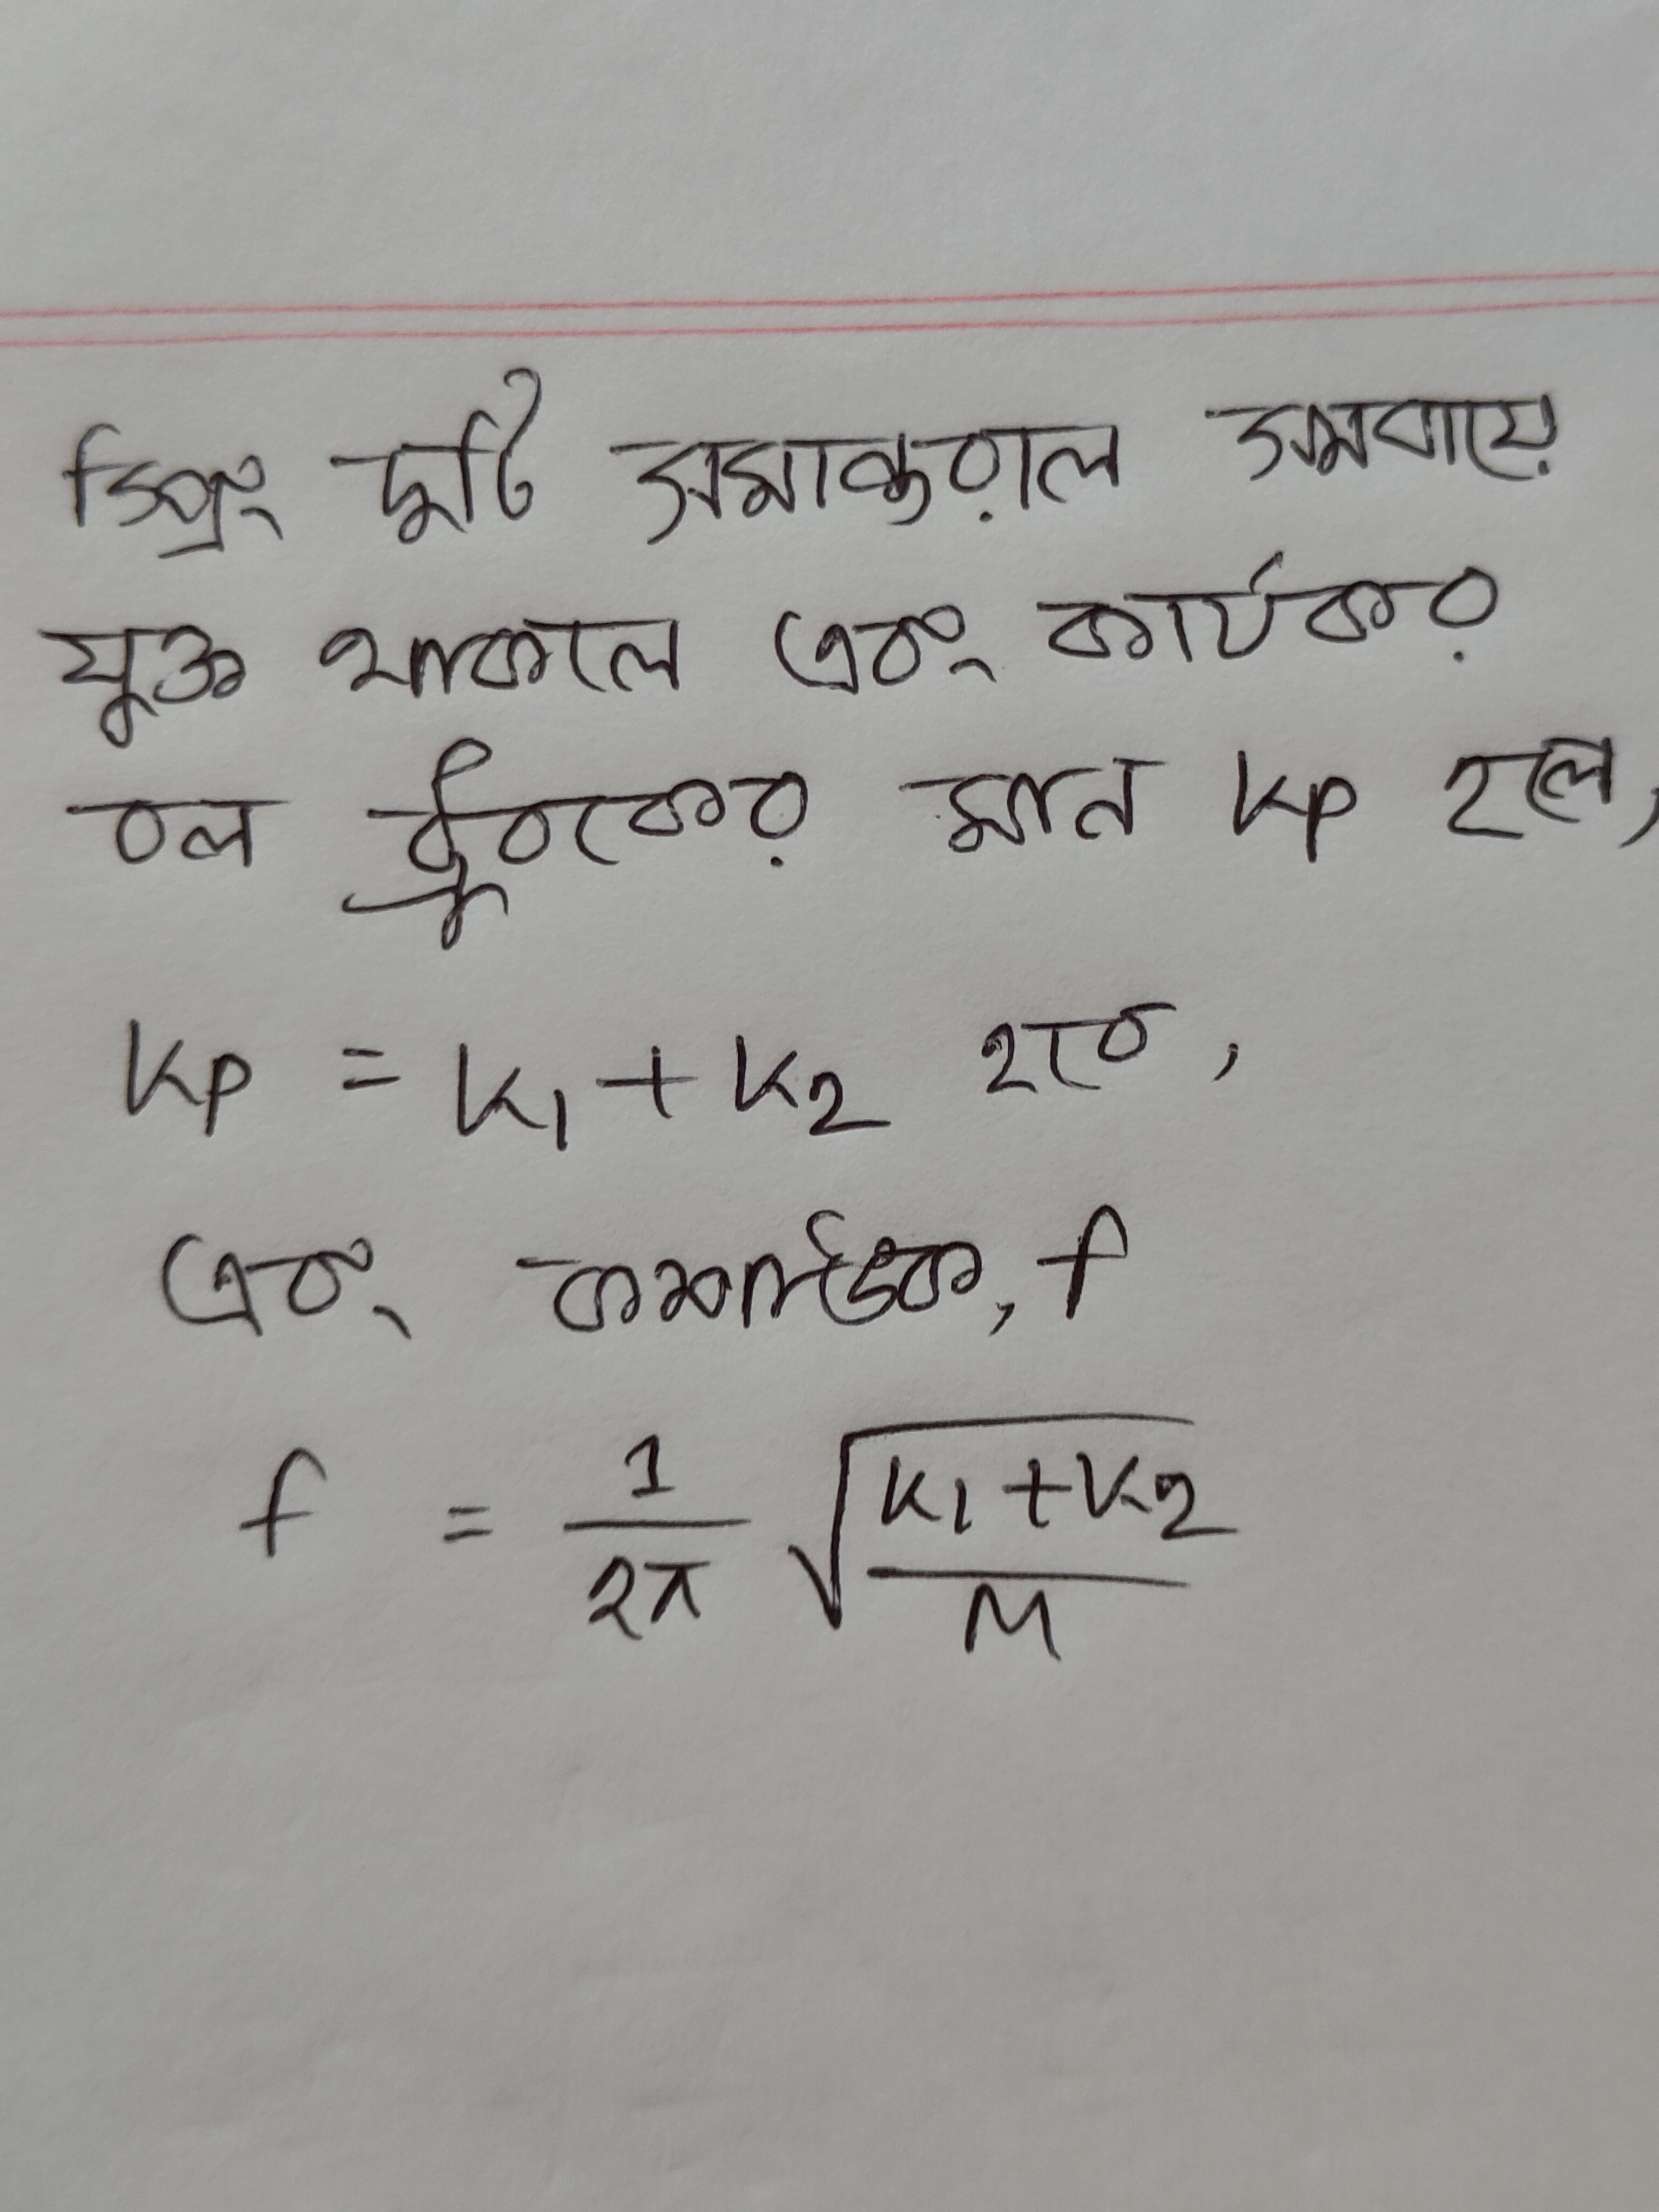 স্প্রিং দুটি সমান্তরাল সমবায়ে
যুক্ত থাকলে এবং কার্যকর
বল ধ্রুবকের মান Kp হলে,
Kp = K₁ + K₂ হবে,
এবং কম্পাঙ্ক, f
f = 1/2π √(K₁+K₂/M)